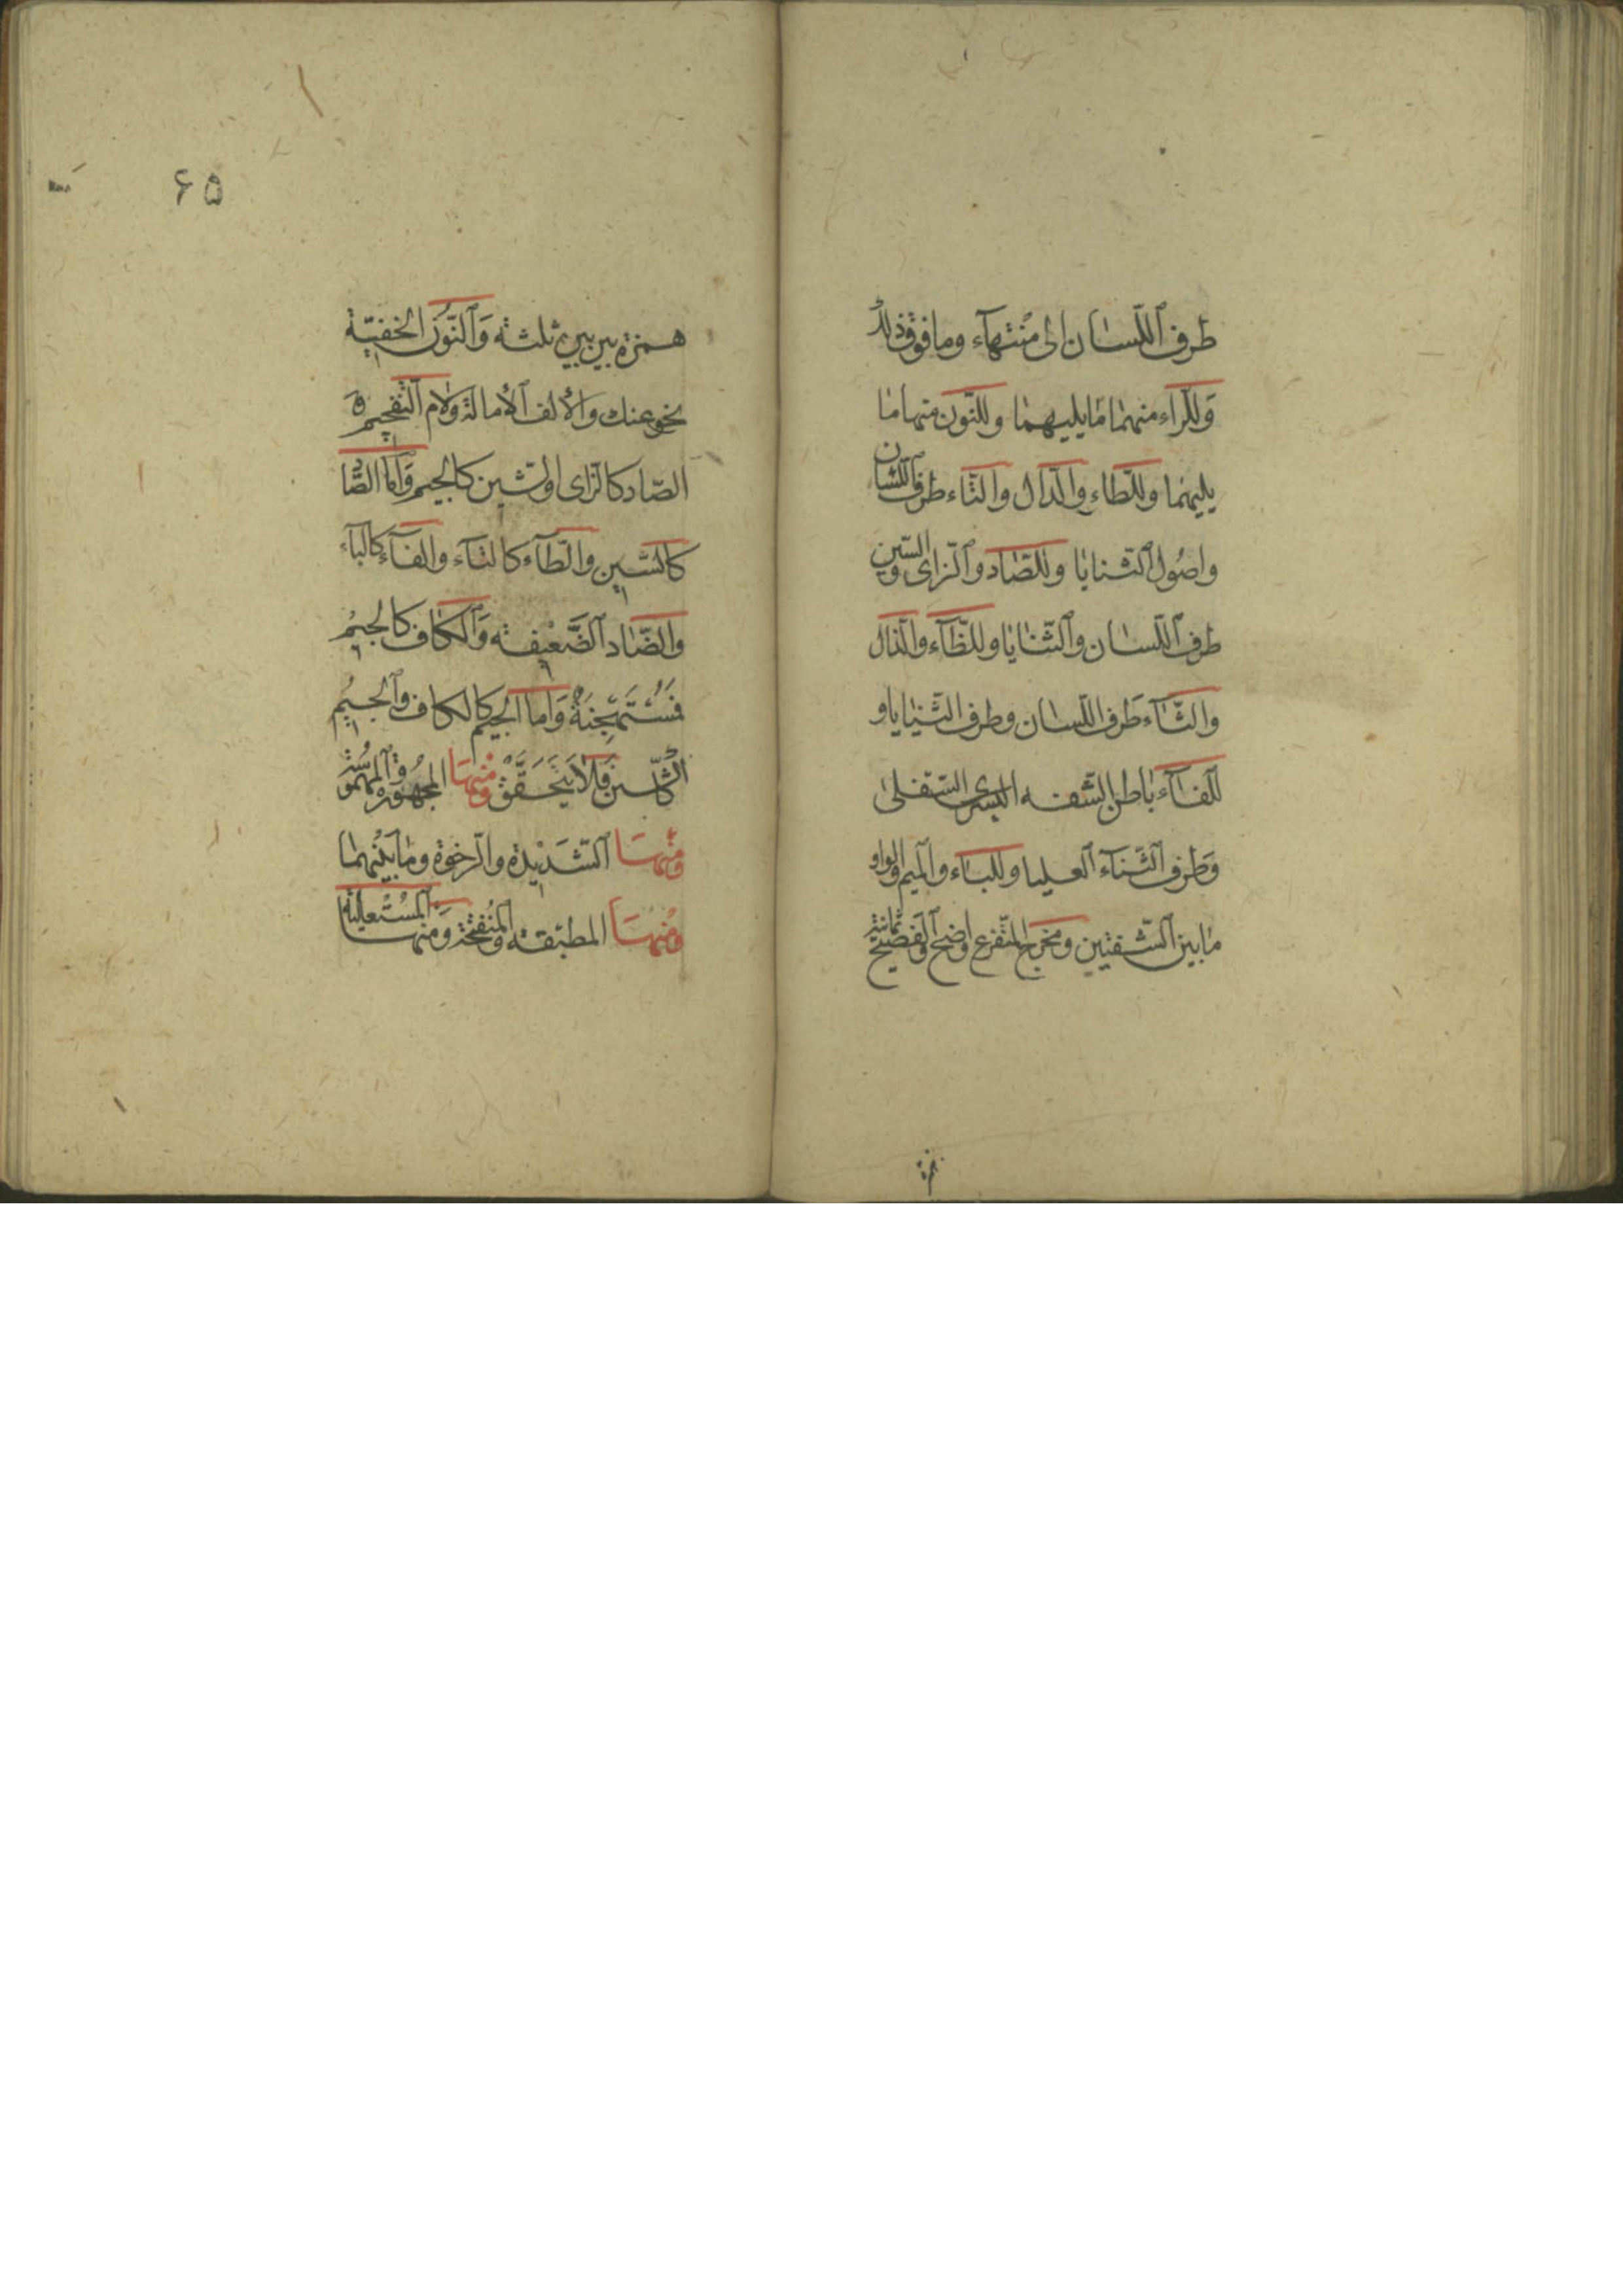 طرف اللسان الى منتهاء وما فوق ذلك
وللراء منهما ما يليهما وللنون منهما ما
يليهما وللطاء والدال والتاء طرف اللسان
واصول الثنايا وللصاد والزاى والسين
طرف اللسان والثنايا وللظاء والذال
والثاء طرف اللسان وطرف الثنايا و
للفاء باطن الشفه السفلى
وطرف الثناء العليا وللباء والميم والواو
ما بين الشفتين ومخرج المتفرع واضح والفصيح ثمانية
همزة
۶۵
همزة بين بين ثلثة والنون الخفية
نحو عنك والألف الأمالة ولام التفخيم و
الصاد كالزاى والشين كالجيم واما الصاد
كالسين والطاء كالتاء والفاء كالباء
والضاد الضعيفة والكاف كالجيم
فمستهجنة واما الجيم كالكاف والجيم
كالشين فلا يتحقق ومنها المجهورة والمهموسة
ومنها الشديدة والرخوة وما بينهما
ومنها المطبقة والمنفتحة ومنها المستعلية